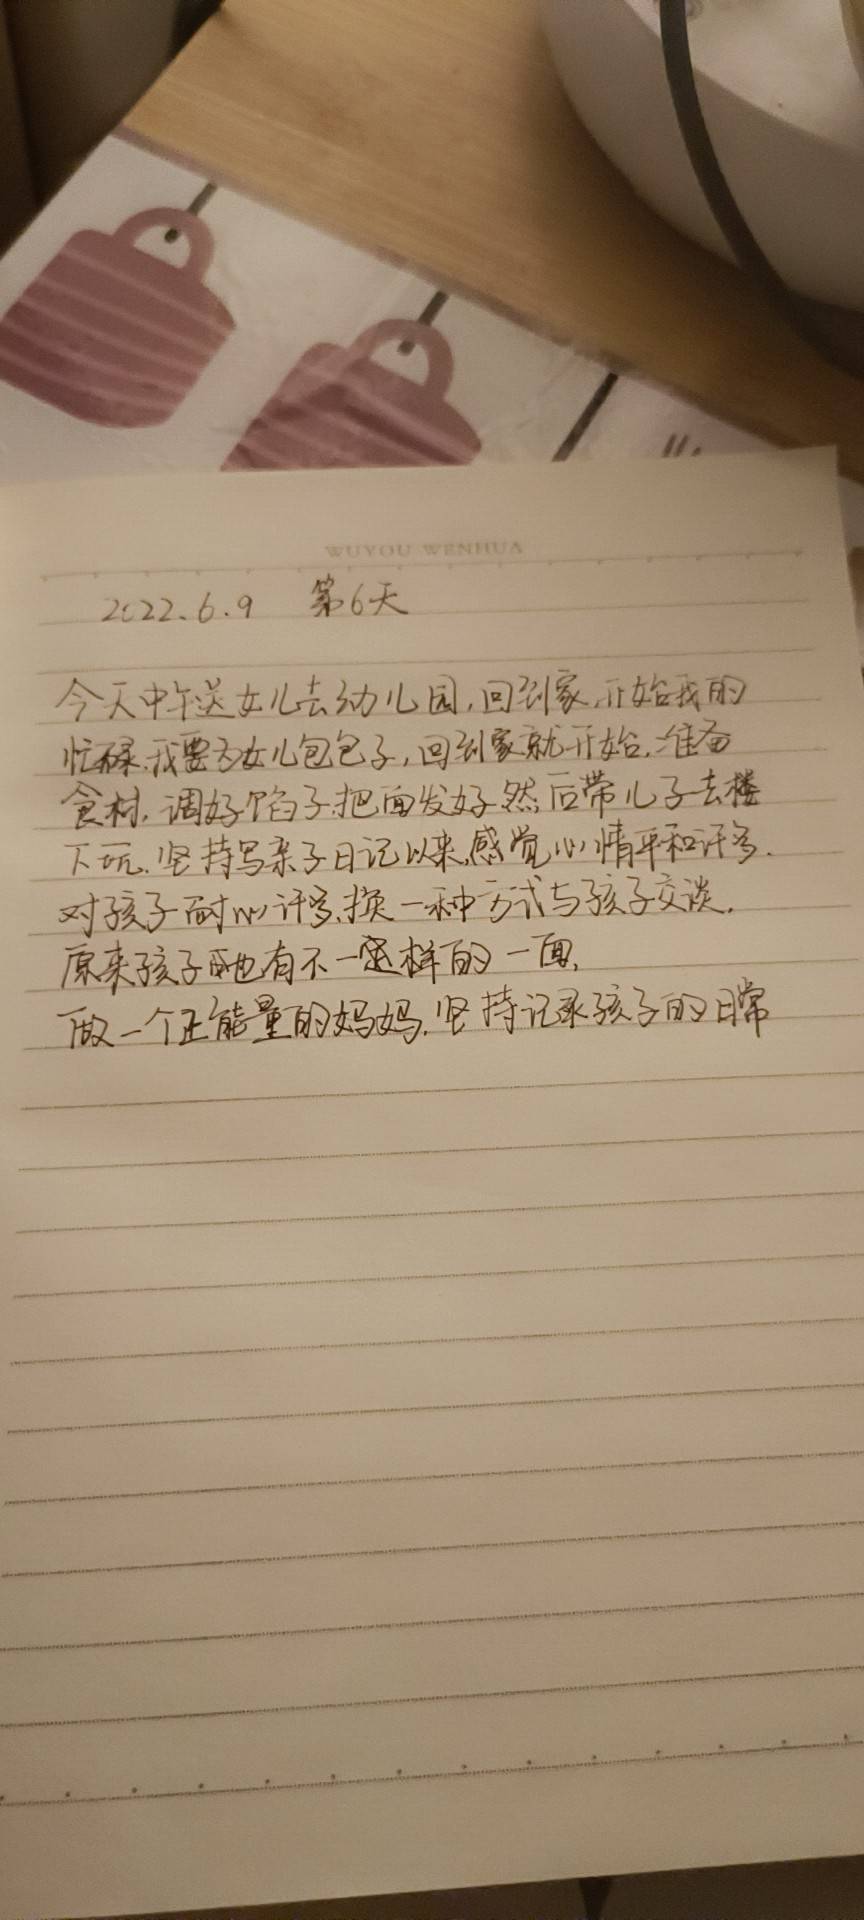 WUYOU WENHUA
2022.6.9 第6天
今天中午送女儿去幼儿园,回到家,开始我的
忙碌.我要为女儿包包子,回到家就开始.准备
食材.调好馅子.把面发好.然后带儿子去楼
下玩.坚持写亲子日记以来,感觉心情平和许多.
对孩子耐心许多.换一种方式与孩子交谈.
原来孩子也有不一样的一面,
做一个正能量的妈妈.坚持记录孩子的日常